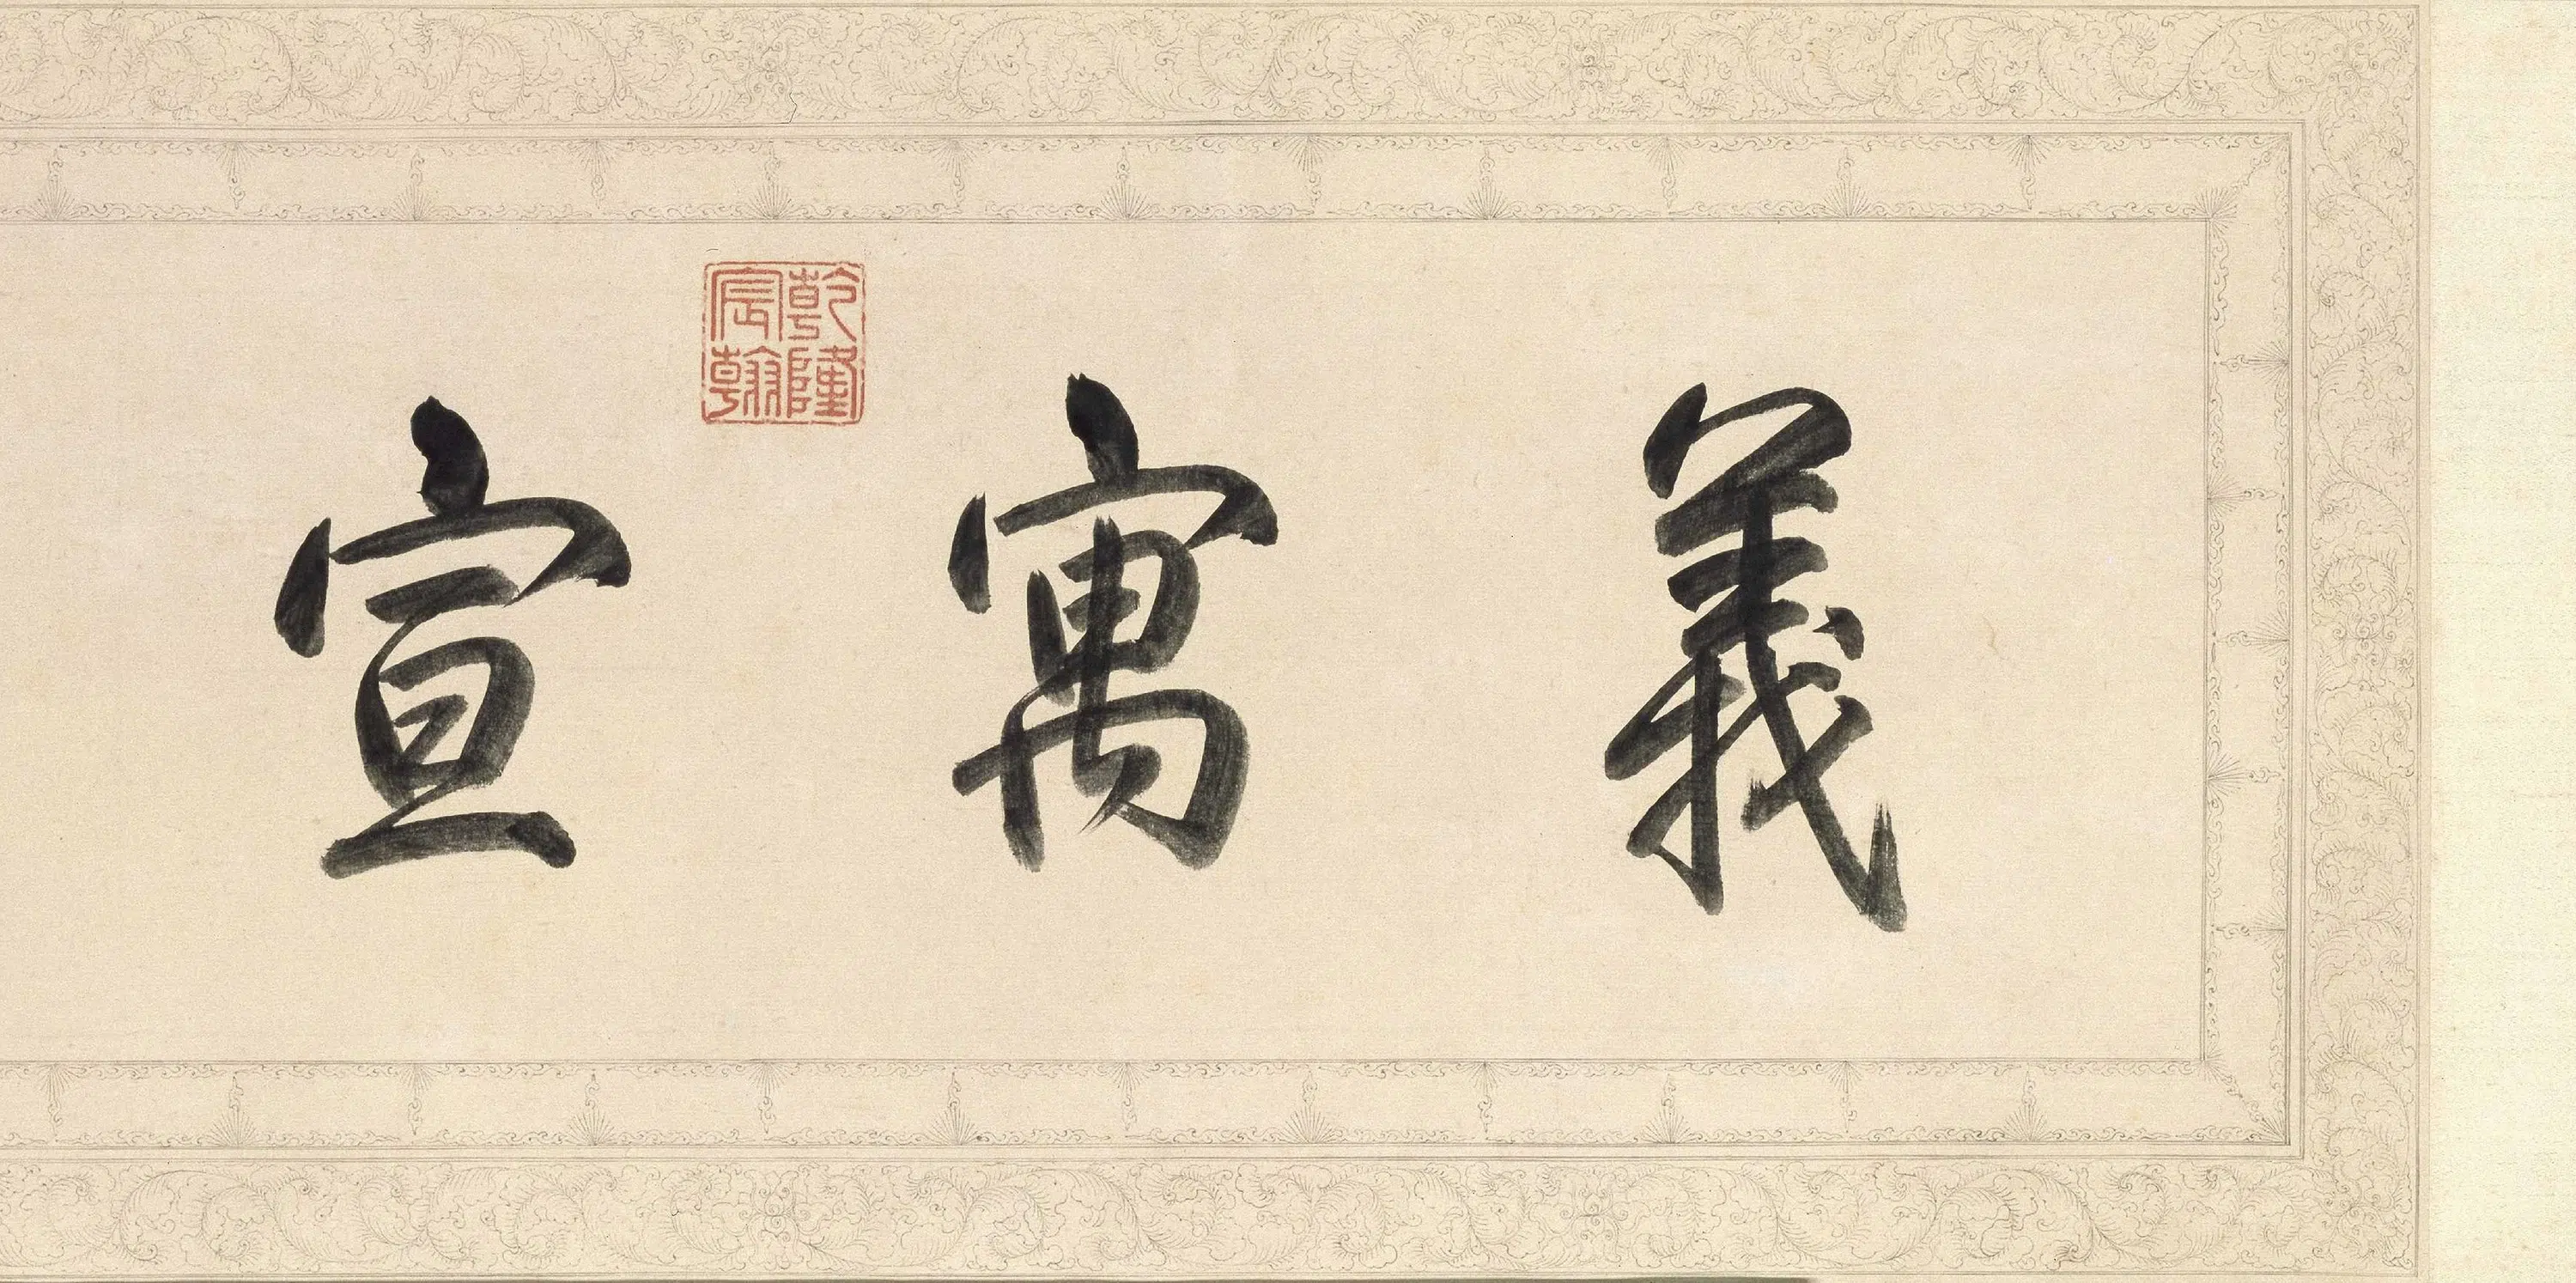 義寓宣
乾隆
宸翰